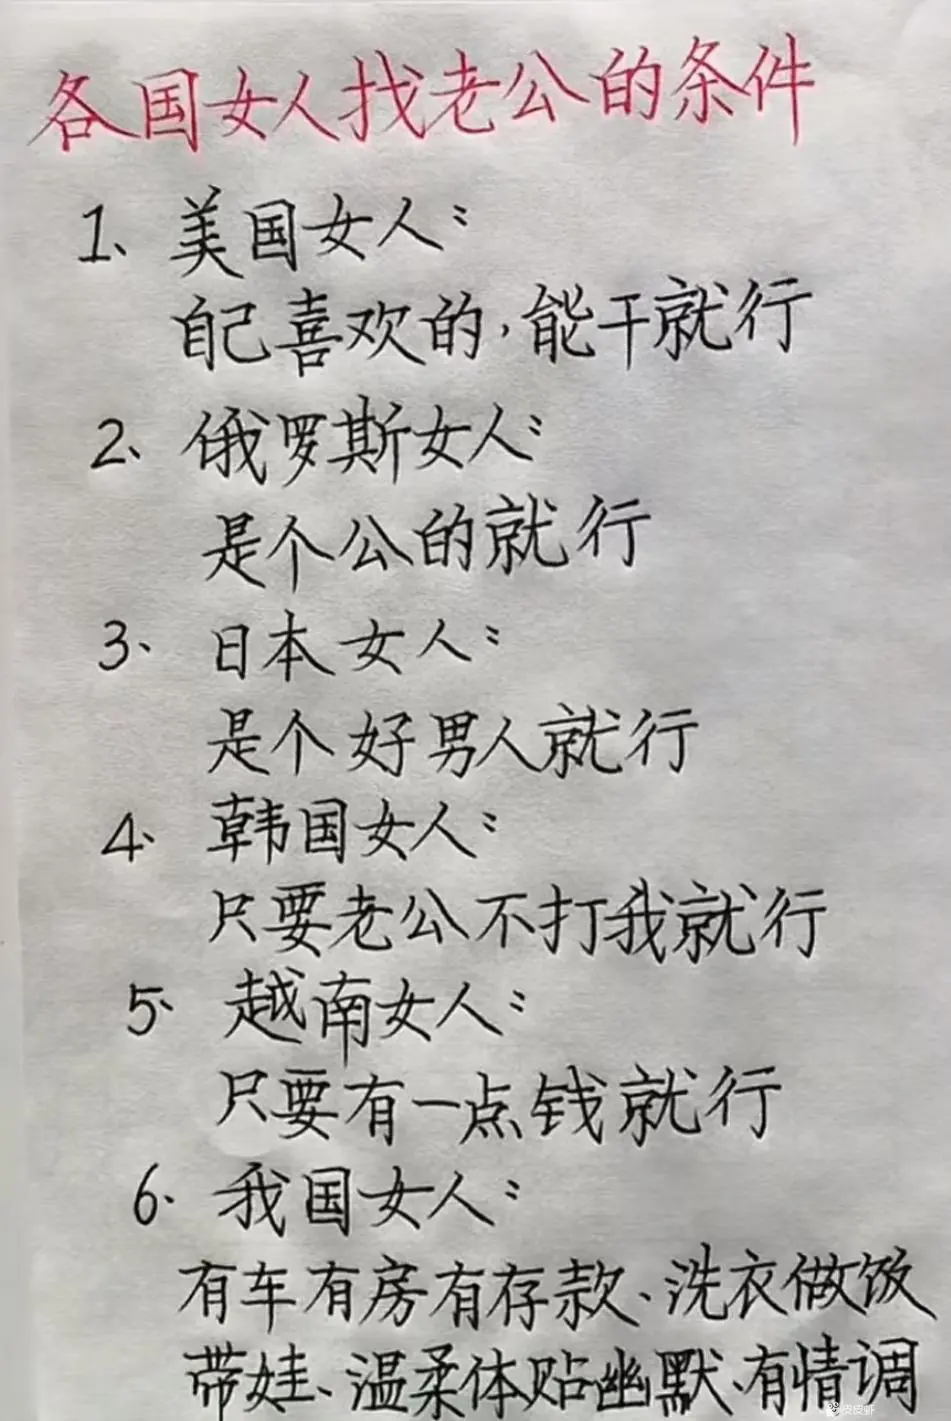 各国女人找老公的条件
1、美国女人:
自己喜欢的,能干就行
2、俄罗斯女人:
是个公的就行
3、日本女人:
是个好男人就行
4、韩国女人:
只要老公不打我就行
5、越南女人:
只要有一点钱就行
6、我国女人:
有车有房有存款、洗衣做饭
带娃、温柔体贴幽默、有情调
皮皮虾